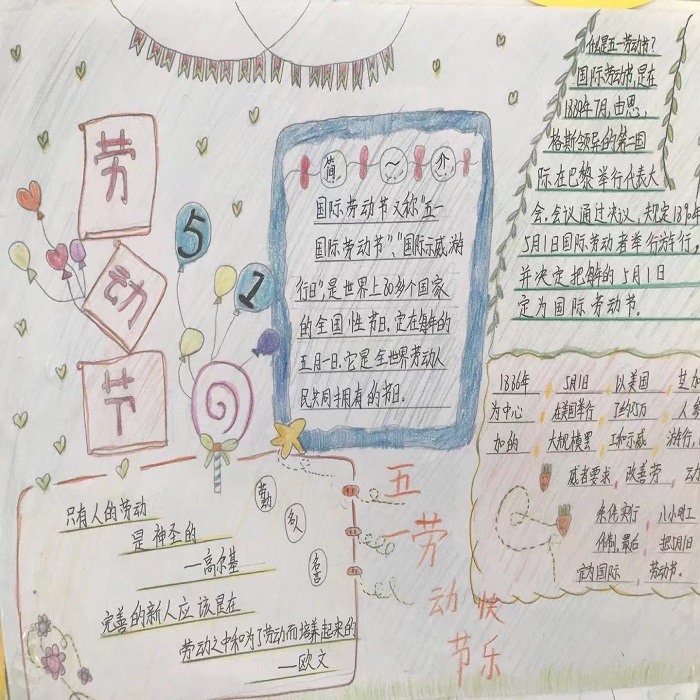 劳
动
节
5
1
简一介
国际劳动节又称“五一
国际劳动节”、“国际示威游
行日”,是世界上80多个国家
的全国性节日.定在每年的
五月一日.它是全世界劳动人
民共同拥有的节日.
什么是五一劳动节?
国际劳动节是在
1889年7月,由恩,
格斯领导的第二国
际在巴黎举行代表大
会.会议通过决议,规定1890年
5月1日国际劳动者举行游行,
并决定把每年的5月1日
定为国际劳动节.
1886年 5月1日 以美国 芝加
为中心 在美国举行 了约35万 人参
加的 大规模罢 工和示威 游行,
威者要求 改善劳 动
条件,实行 八小时工
作制,最后 把5月1日
定为国际 劳动节.
只有人的劳动
是神圣的
—高尔基
完善的新人应该是在
劳动之中和为了劳动而培养起来的
—欧文
劳动
名人
名言
五一劳动节
快乐